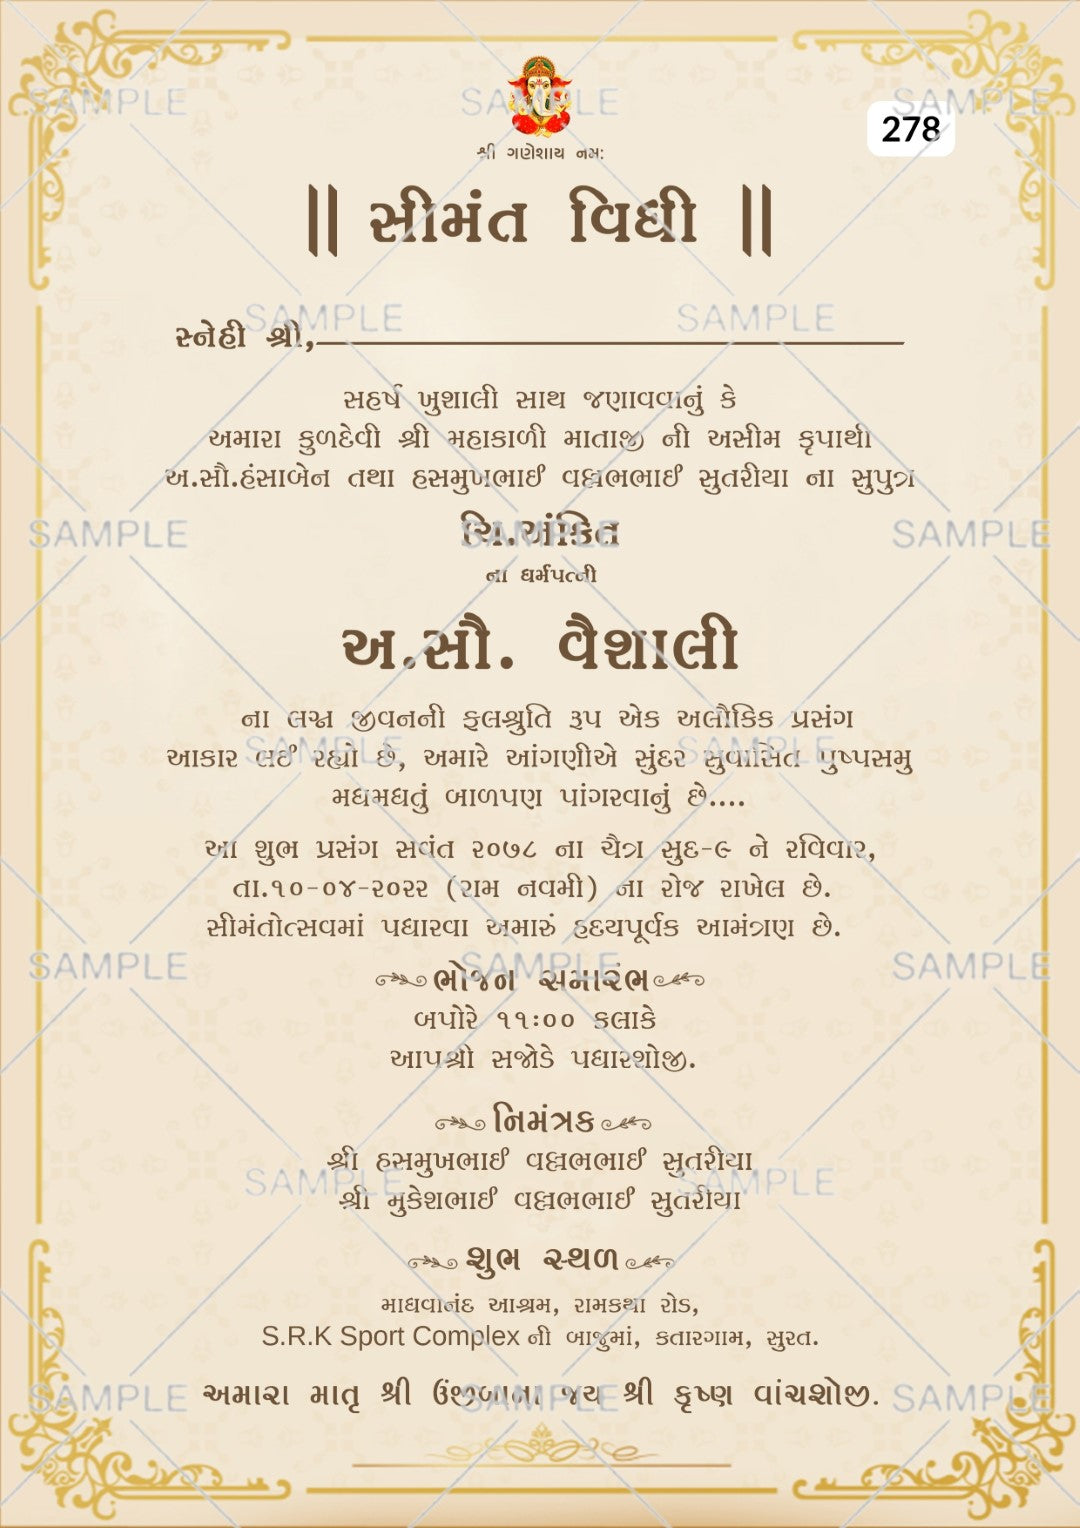 278
શ્રી ગણેશાય નમ:
|| સીમંત વિધી ||
સ્નેહી શ્રી,
સહર્ષ ખુશાલી સાથ જણાવવાનું કે
અમારા કુળદેવી શ્રી મહાકાળી માતાજી ની અસીમ કૃપાથી
અ.સૌ.હંસાબેન તથા હસમુખભાઈ વલ્લભભાઈ સુતરીયા ના સુપુત્ર
ચિ.અંકિત
ના ધર્મપત્ની
અ.સૌ. વૈશાલી
ના લગ્ન જીવનની ફલશ્રુતિ રૂપ એક અલૌકિક પ્રસંગ
આકાર લઈ રહ્યો છે, અમારે આંગણીએ સુંદર સુવાસિત પુષ્પસમુ
મઘમઘતું બાળપણ પાંગરવાનું છે....
આ શુભ પ્રસંગ સવંત ૨૦૭૮ ના ચૈત્ર સુદ-૯ ને રવિવાર,
તા.૧૦-૦૪-૨૦૨૨ (રામ નવમી) ના રોજ રાખેલ છે.
સીમંતોત્સવમાં પધારવા અમારું હૃદયપૂર્વક આમંત્રણ છે.
ભોજન સમારંભ
બપોરે ૧૧:૦૦ કલાકે
આપશ્રી સજોડે પધારશોજી.
નિમંત્રક
શ્રી હસમુખભાઈ વલ્લભભાઈ સુતરીયા
શ્રી મુકેશભાઈ વલ્લભભાઈ સુતરીયા
શુભ સ્થળ
માધવાનંદ આશ્રમ, રામકથા રોડ,
S.R.K Sport Complex ની બાજુમાં, કતારગામ, સુરત.
અમારા માતૃ શ્રી ઉંજીબાના જય શ્રી કૃષ્ણ વાંચશોજી.